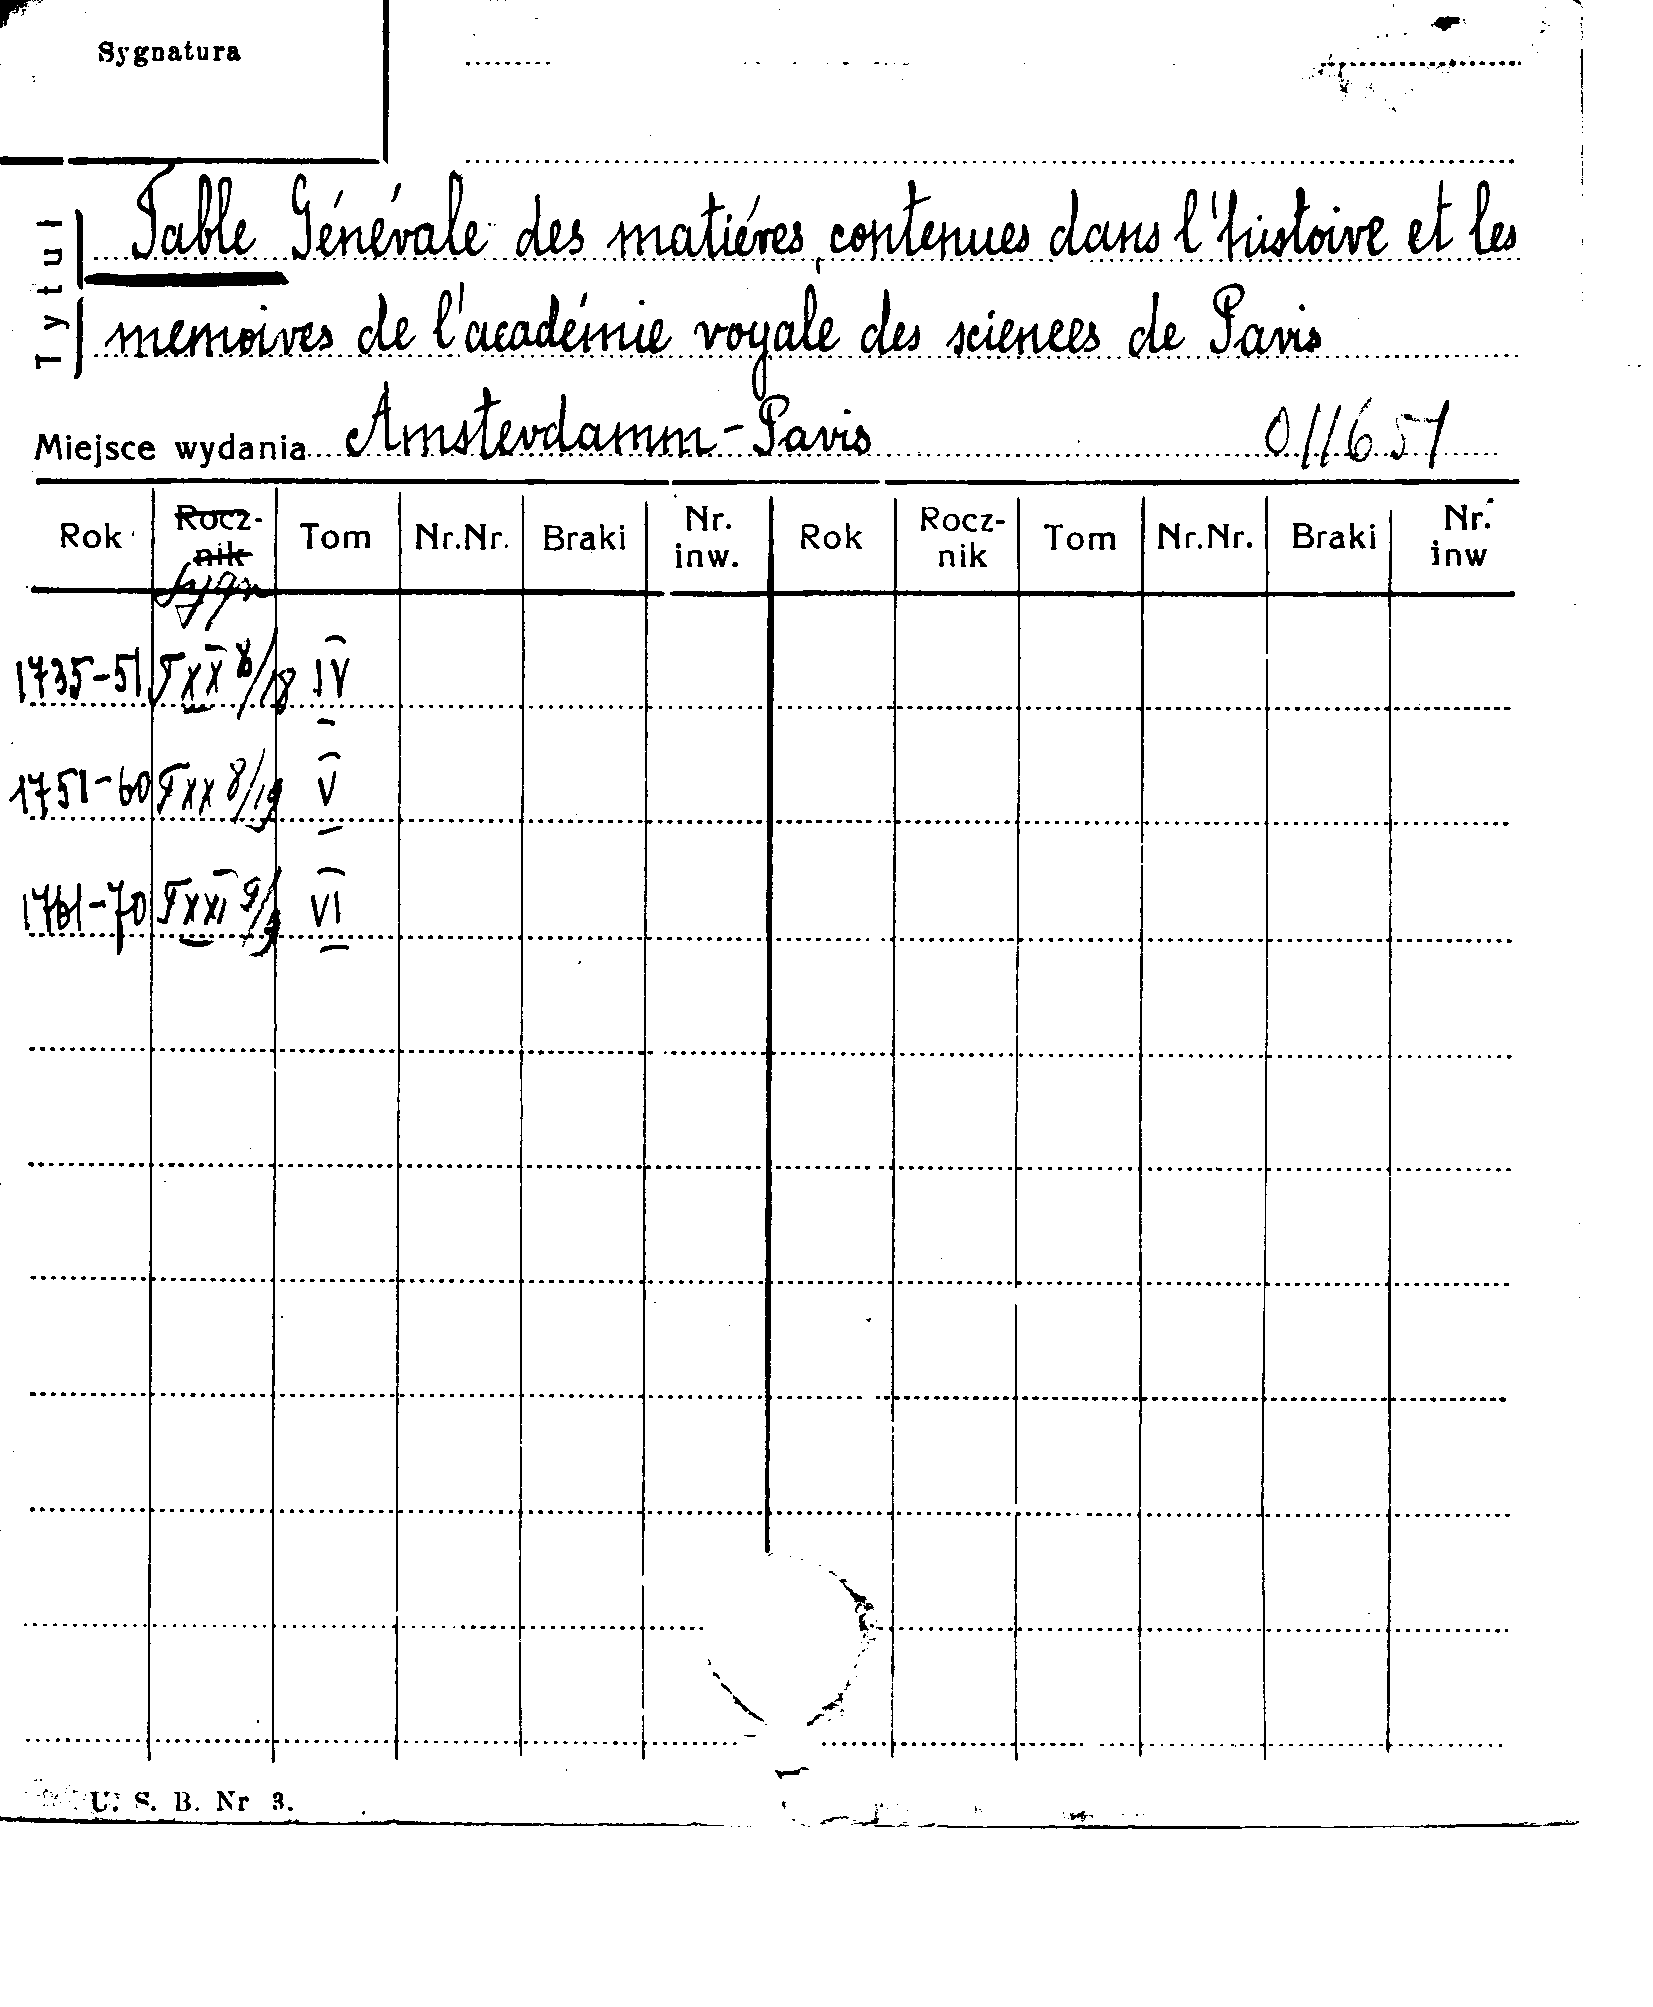 Sygnatura
Tytuł
Table Générale des matiéres contenues dans l'histoire et les
memoires de l'académie royale des sciences de Paris
Miejsce wydania Amsterdamm-Paris 011651
Rok Rocz-nik Sygn Tom Nr.Nr. Braki Nr. inw. Rok Rocz-nik Tom Nr.Nr. Braki Nr. inw
1735-51 TXX 8/18 IV
1751-60 TXX 8/19 V
1761-70 TXXI 9/3 VI
U. S. B. Nr 3.